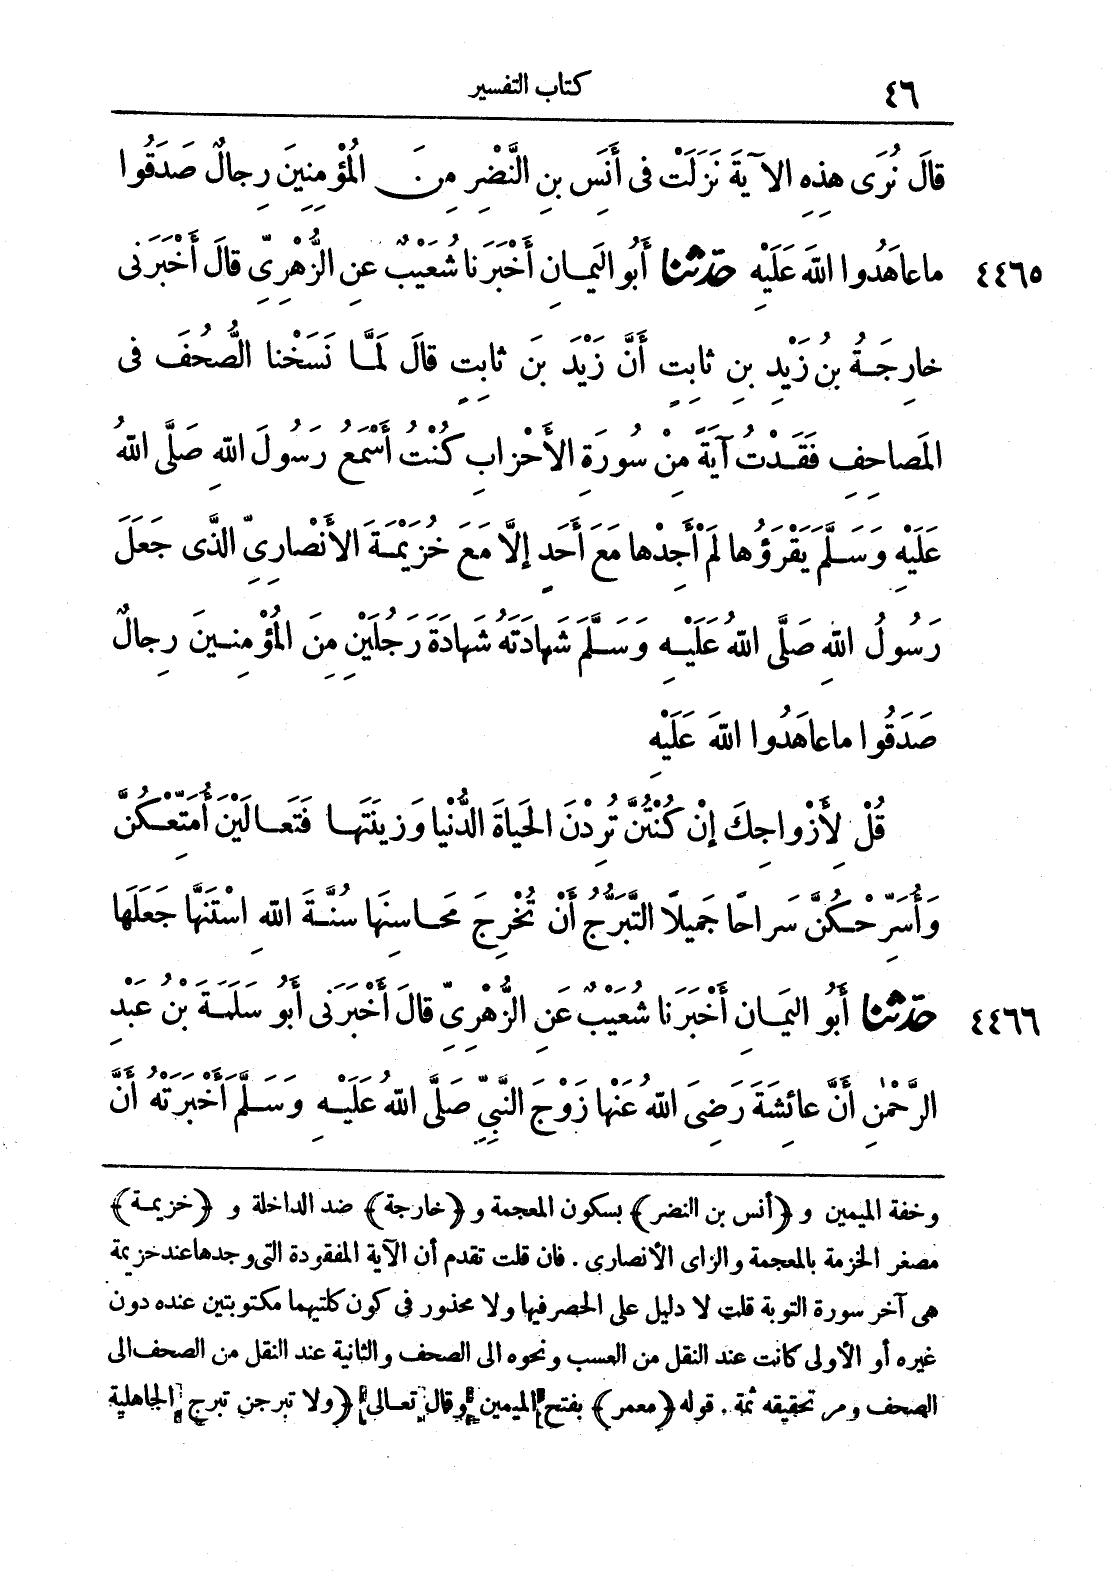 ٤٦
كتاب التفسير
قالَ نُرَى هذِهِ الآيَةَ نَزَلَتْ فِى أَنَسِ بنِ النَّضْرِ مِنَ المُؤْمِنِينَ رِجالٌ صَدَقُوا
٤٤٦٥ ما عاهَدُوا اللهَ عَلَيْهِ حَدَّثَنا أَبُو اليَمانِ أَخْبَرَنا شُعَيْبٌ عنِ الزُّهْرِىِّ قالَ أَخْبَرَنى
خارِجَةُ بنُ زَيْدِ بنِ ثابِتٍ أَنَّ زَيْدَ بنَ ثابِتٍ قالَ لَمَّا نَسَخْنا الصُّحُفَ فى
المَصاحِفِ فَقَدْتُ آيَةً مِنْ سُورَةِ الأَحْزابِ كُنْتُ أَسْمَعُ رَسُولَ اللهِ صَلَّى اللهُ
عَلَيْهِ وَسَلَّمَ يَقْرَؤُها لَمْ أَجِدْها مَعَ أَحَدٍ إلاَّ مَعَ خُزَيْمَةَ الأَنْصارِىِّ الذَّى جَعَلَ
رَسُولُ اللهِ صَلَّى اللهُ عَلَيْهِ وَسَلَّمَ شَهادَتَهُ شَهادَةَ رَجُلَيْنِ مِنَ المُؤْمِنِينَ رِجالٌ
صَدَقُوا ما عاهَدُوا اللهَ عَلَيْهِ
قُلْ لِأَزْواجِكَ إِنْ كُنْتُنَّ تُرِدْنَ الحَياةَ الدُّنْيا وَزِينَتَها فَتَعالَيْنَ أُمَتِّعْكُنَّ
وَأُسَرِّحْكُنَّ سَراحًا جَمِيلًا التَّبَرُّجُ أَنْ تُخْرِجَ مَحَاسِنَها سُنَّةَ اللهِ اسْتَنَّها جَعَلَها
٤٤٦٦ حَدَّثَنا أَبُو اليَمانِ أَخْبَرَنا شُعَيْبٌ عَنِ الزُّهْرِىِّ قالَ أَخْبَرَنى أَبُو سَلَمَةَ بْنُ عَبْدِ
الرَّحْمٰنِ أَنَّ عائِشَةَ رَضِىَ اللهُ عَنْها زَوْجَ النَّبِيِّ صَلَّى اللهُ عَلَيْهِ وَسَلَّمَ أَخْبَرَتْهُ أَنَّ
وخفة الميمين و ﴿أنس بن النضر﴾ بسكون المعجمة و﴿خارجة﴾ ضد الداخلة و ﴿خزيمة﴾
مصغر الخزمة بالمعجمة والزاى الأنصارى . فان قلت تقدم أن الآية المفقودة التى وجدها عند خزيمة
هى آخر سورة التوبة قلت لا دليل على الحصر فيها ولا محذور فى كون كلتيهما مكتوبتين عنده دون
غيره أو الأولى كانت عند النقل من العسب ونحوه الى الصحف والثانية عند النقل من الصحف الى
الصحف ومر تحقيقه ثمة . قوله ﴿معمر﴾ بفتح الميمين وقال تعالى ﴿ولا تبرجن تبرج الجاهلية